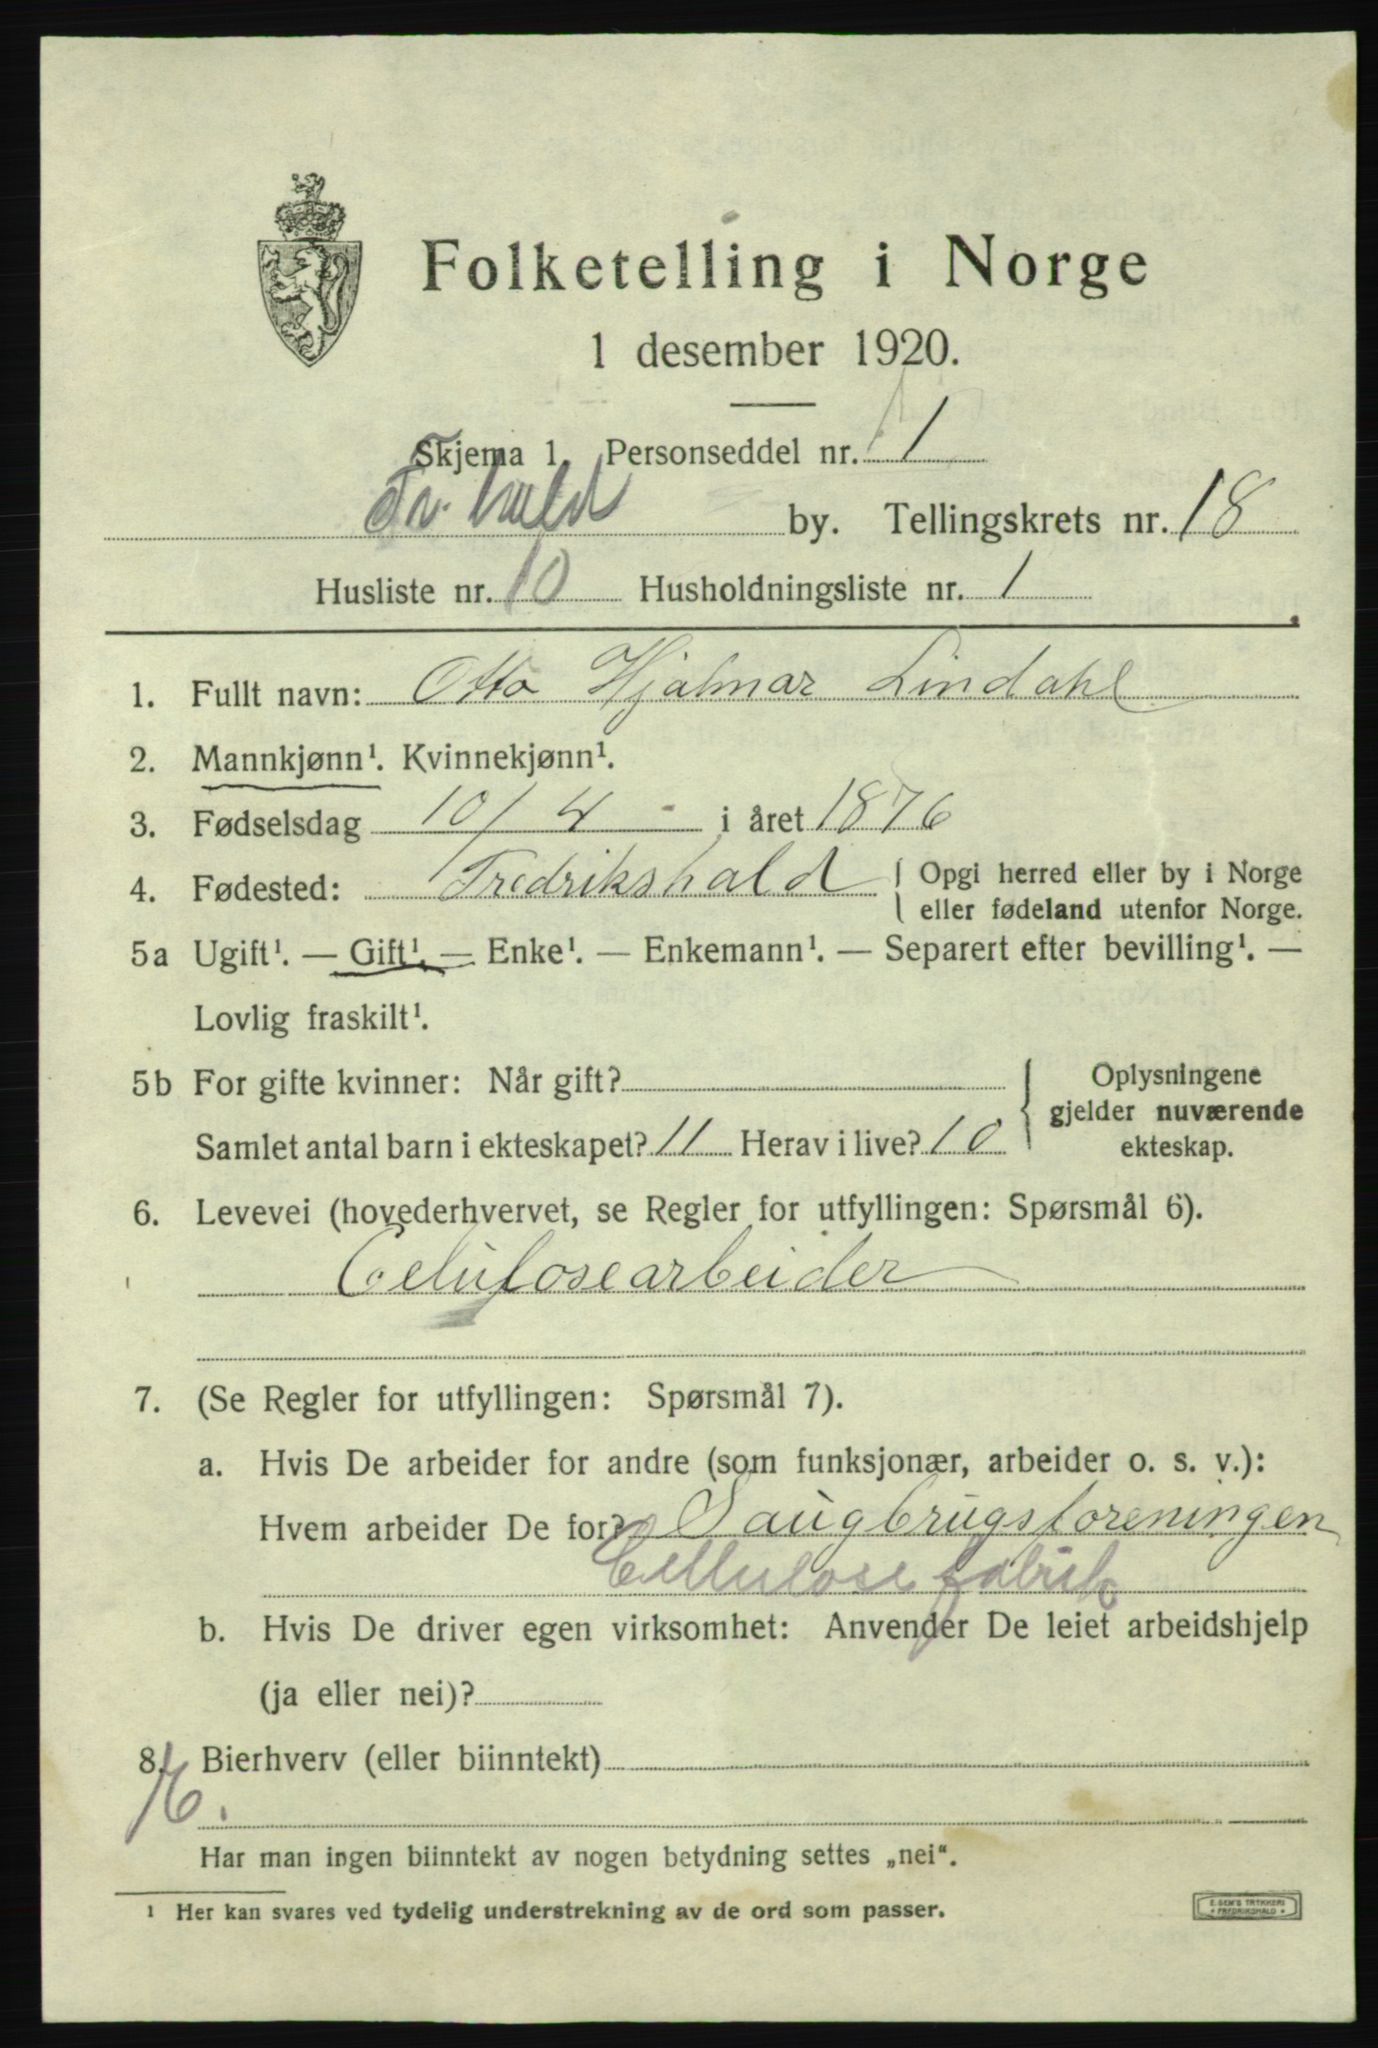 Folketelling i Norge
1 desember 1920.
Skjema 1. Personseddel nr. 1
Fr.hald by. Tellingskrets nr. 18
Husliste nr. 10 Husholdningsliste nr. 1
1. Fullt navn: Otto Hjalmar Lindahl
2. Mannkjønn¹. Kvinnekjønn¹.
3. Fødselsdag 10/4 i året 1876
4. Fødested: Fredrikshald { Opgi herred eller by i Norge
eller fødeland utenfor Norge.
5a Ugift¹. — Gift¹. — Enke¹. — Enkemann¹. — Separert efter bevilling¹. —
Lovlig fraskilt¹.
5b For gifte kvinner: Når gift?
Samlet antal barn i ekteskapet? 11 Herav i live? 10
Oplysningene
gjelder nuværende
ekteskap.
6. Levevei (hovederhvervet, se Regler for utfyllingen: Spørsmål 6).
Celulosearbeider
7. (Se Regler for utfyllingen: Spørsmål 7).
a. Hvis De arbeider for andre (som funksjonær, arbeider o. s. v.):
Hvem arbeider De for? Saugbrugsforeningen
Cellulosefabrik
b. Hvis De driver egen virksomhet: Anvender De leiet arbeidshjelp
(ja eller nei)?
8. Bierhverv (eller biinntekt)
Har man ingen biinntekt av nogen betydning settes „nei“.
¹ Her kan svares ved tydelig understrekning av de ord som passer.
E. SEM'S TRYKKERI
* FREDRIKSHALD *